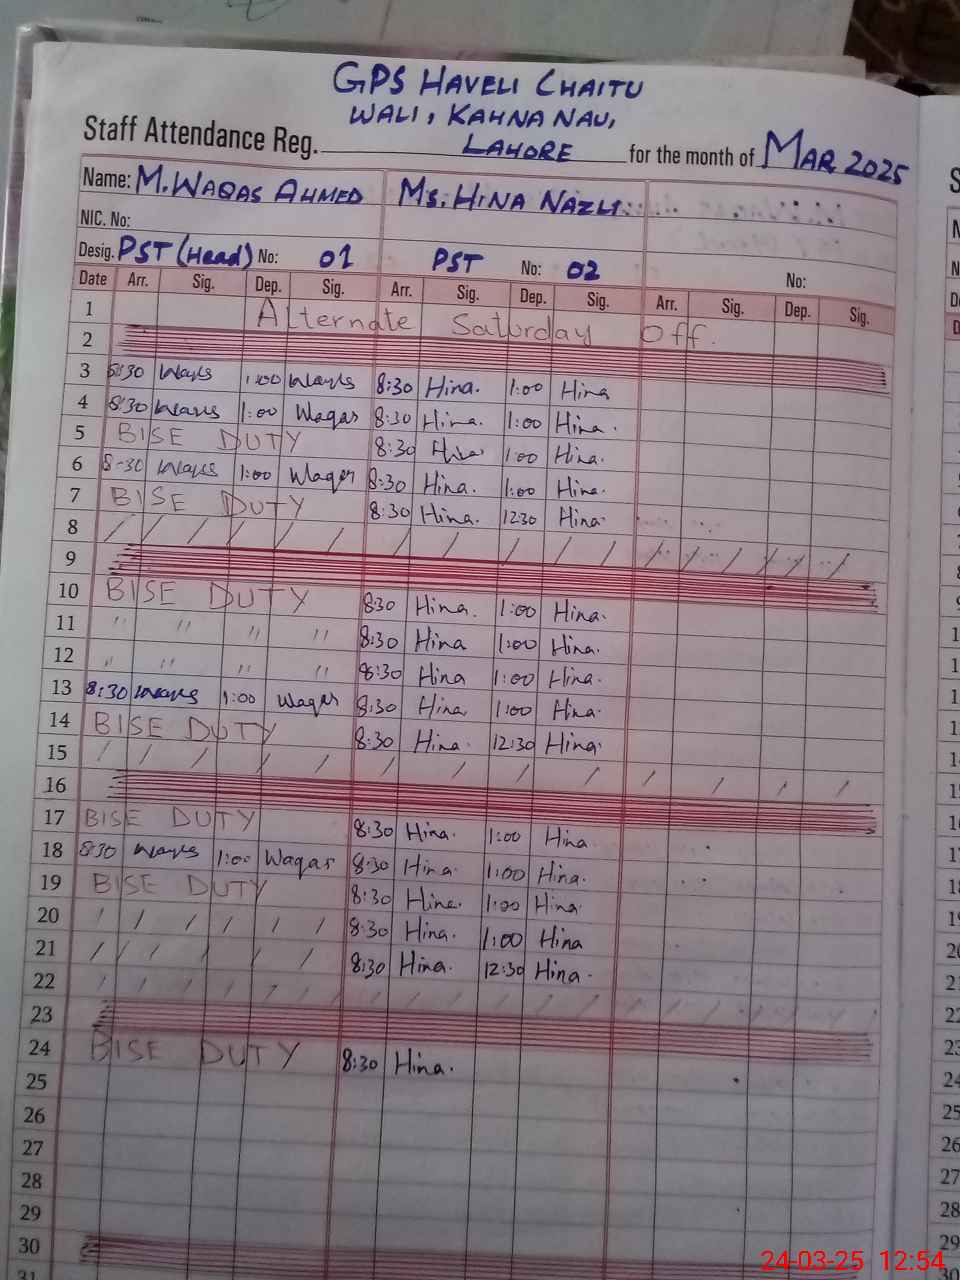 GPS HAVELI CHAITU
WALI, KAHNA NAU,
Staff Attendance Reg. LAHORE for the month of MAR 2025
Name: M. WAQAS AHMED Ms. HINA NAZLI
NIC. No:
Desig. PST (Head) No: 01 PST No: 02 No:
Date Arr. Sig. Dep. Sig. Arr. Sig. Dep. Sig. Arr. Sig. Dep. Sig.
1 Alternate Saturday Off.
2
3 8:30 Waqas 1:00 Waqas 8:30 Hina. 1:00 Hina
4 8:30 Waqas 1:00 Waqas 8:30 Hina. 1:00 Hina.
5 BISE DUTY 8:30 Hina 1:00 Hina.
6 8-30 Waqas 1:00 Waqas 8:30 Hina. 1:00 Hina.
7 BISE DUTY 8:30 Hina. 12:30 Hina.
8 / / / / / / / / / / / / / /
9
10 BISE DUTY 8:30 Hina. 1:00 Hina.
11 " " " " 8:30 Hina 1:00 Hina.
12 " " " " 8:30 Hina 1:00 Hina.
13 8:30 Waqas 1:00 Waqas 8:30 Hina 1:00 Hina.
14 BISE DUTY 8:30 Hina. 12:30 Hina.
15 / / / / / / / / / / / / /
16
17 BISE DUTY 8:30 Hina. 1:00 Hina
18 8:30 Waqas 1:00 Waqas 8:30 Hina. 1:00 Hina.
19 BISE DUTY 8:30 Hina. 1:00 Hina.
20 / / / / / / 8:30 Hina. 1:00 Hina
21 / / / / / / 8:30 Hina. 12:30 Hina.
22 / / / / / / / / / / / / / /
23
24 BISE DUTY 8:30 Hina.
25
26
27
28
29
30
31
24-03-25 12:54